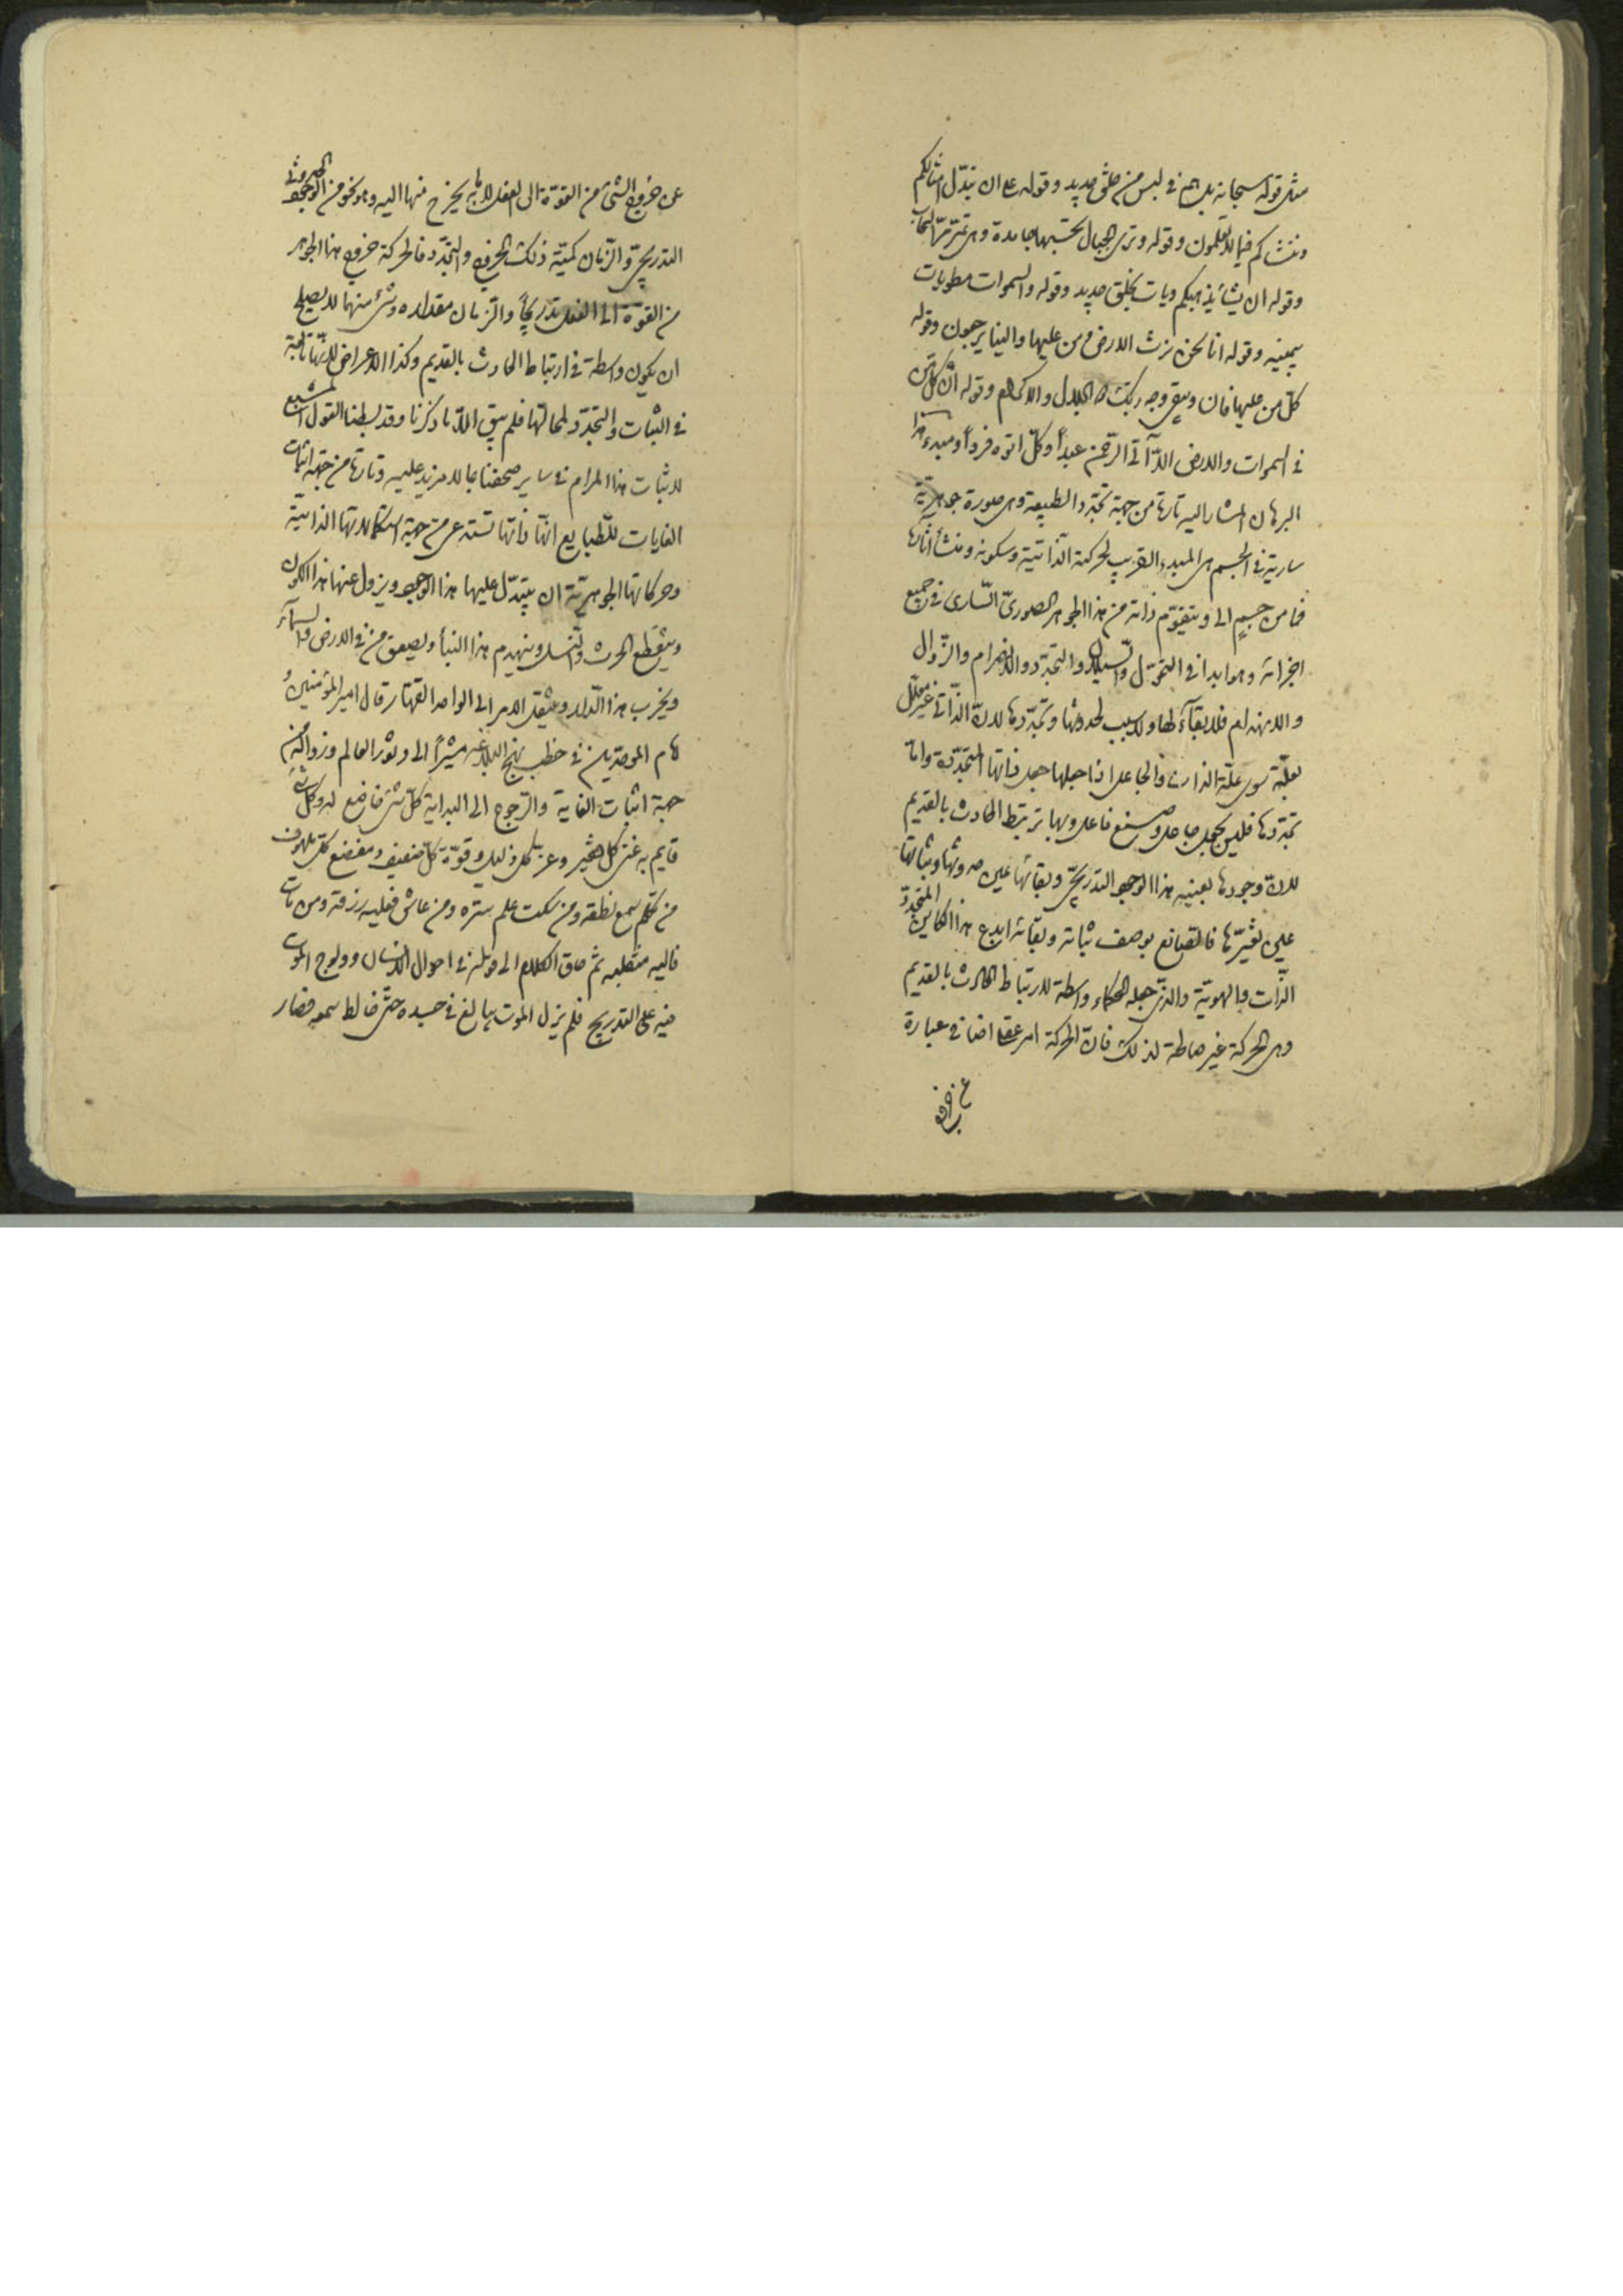 مثل قوله سبحانه بل هم في لبس من خلق جديد و قوله على ان نبدّل امثالكم
وننشئكم فيما لا تعلمون و قوله و ترى الجبال تحسبها جامدة و هى تمرّ مرّ السحاب
و قوله ان يشأ يذهبكم ويأت بخلق جديد و قوله والسموات مطويات
بيمينه و قوله انا نحن نرث الارض و من عليها والينا يرجعون و قوله
كلّ من عليها فان و يبقى وجه ربك ذو الجلال والاكرام و قوله ان كلّ من
فى السموات والارض الاّ آتى الرّحمن عبداً و كلّ اتوه فرداً و مبدء هذا
البرهان المشار اليه تارة من جهة تجدّد الطبيعة و هى صورة جوهريّة
سارية فى الجسم هى المبدء القريب لحركته الذاتية و سكونه و منشأ آثارها
فما من جسم الا و يتقوّم ذاته من هذا الجوهر الصورىّ السّارى فى جميع
اجزائه و هو ابدا فى التحوّل والسيلان والتجدّد والانصرام والزّوال
والانهدام فلا بقآء لها ولا سبب لحدوثها و تجدّدها لانّ الذّاتى غير معلّل
بعلّة سوى علّة الذات والجاعل اذا جعلها جعل ذاتها المتجدّدة و امّا
تجدّدها فليس بجعل جاعل و صنع فاعل و بها يرتبط الحادث بالقديم
لانّ وجودها بعينه هذا الوجود التدريجىّ و بقائها عين حدوثها و ثباتها
عين تغيّرها فالصانع بوصف ثباته و بقائه ابدع هذا الكائن المتجدّد
الذّات والهويّة والذى جعله الحكماء واسطة لارتباط الحادث بالقديم
و هى الحركة غير صالحة لذلك فانّ الحركة امر عقلى اضافى عبارة
عن خروج
عن خروج الشئ من القوّة الى الفعل لا ما به يخرج منها اليه و هو نحو من الوجود الحدوثى
التدريجىّ و الزّمان كميّة ذلك الخروج والتجدّد فالحركة خروج هذا الجوهر
من القوّة الى الفعل تدريجاً والزمان مقداره و شئ منهما لا يصلح
ان يكون واسطة فى ارتباط الحادث بالقديم و كذا الاعراض لانّها تابعة
فى الثبات والتجدّد لمحالّها فلم يبق الاّ ما ذكرنا و قد بسطنا القول المشبع
لاثبات هذا المرام فى ساير صحفنا بما لا مزيد عليه و تارة من جهة اثبات
الغايات للطبايع انّها ذاتها تستدعى من جهة استكمالاتها الذاتية
و حركاتها الجوهريّة ان يتبدّل عليها هذا الوجود و يزول عنها هذا الكون
و ينقطع الحرث والنسل و ينهدم هذا البنأ و يصعق من فى الارض والسمآء
و يخرب هذا الدّار و ينتقل الامر الى الواحد القهّار قال امير المؤمنين و
امام الموحّدين فى خطب نهج البلاغة مشيراً الى دثور العالم و زواله من
جهة اثبات الغاية والرّجوع الى البداية كلّ شئ خاضع له و كل شئ
قايم به غنى كلّ فقير و عزّ كل ذليل و قوّة كلّ ضعيف و مفزع كل ملهوف
من تكلّم سمع نطقه و من سكت علم سرّه و من عاش فعليه رزقه و من مات
فاليه منقلبه ثم ساق الكلام الى قوله فى احوال الانسان و ولوج الموت
فيه على التدريج فلم يزل الموت يبالغ فى جسده حتّى خالط سمعه فصار